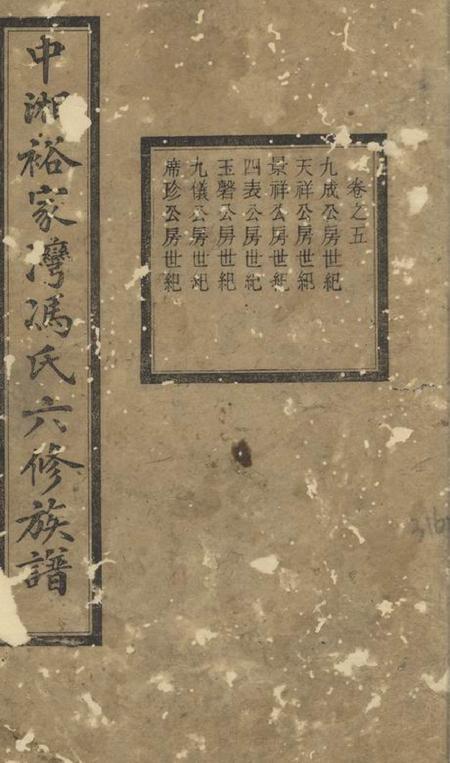 中湘裕家灣馮氏六修族譜
卷之五
九成公房世紀
天祥公房世紀
景祥公房世紀
四表公房世紀
玉磬公房世紀
九儀公房世紀
席珍公房世紀